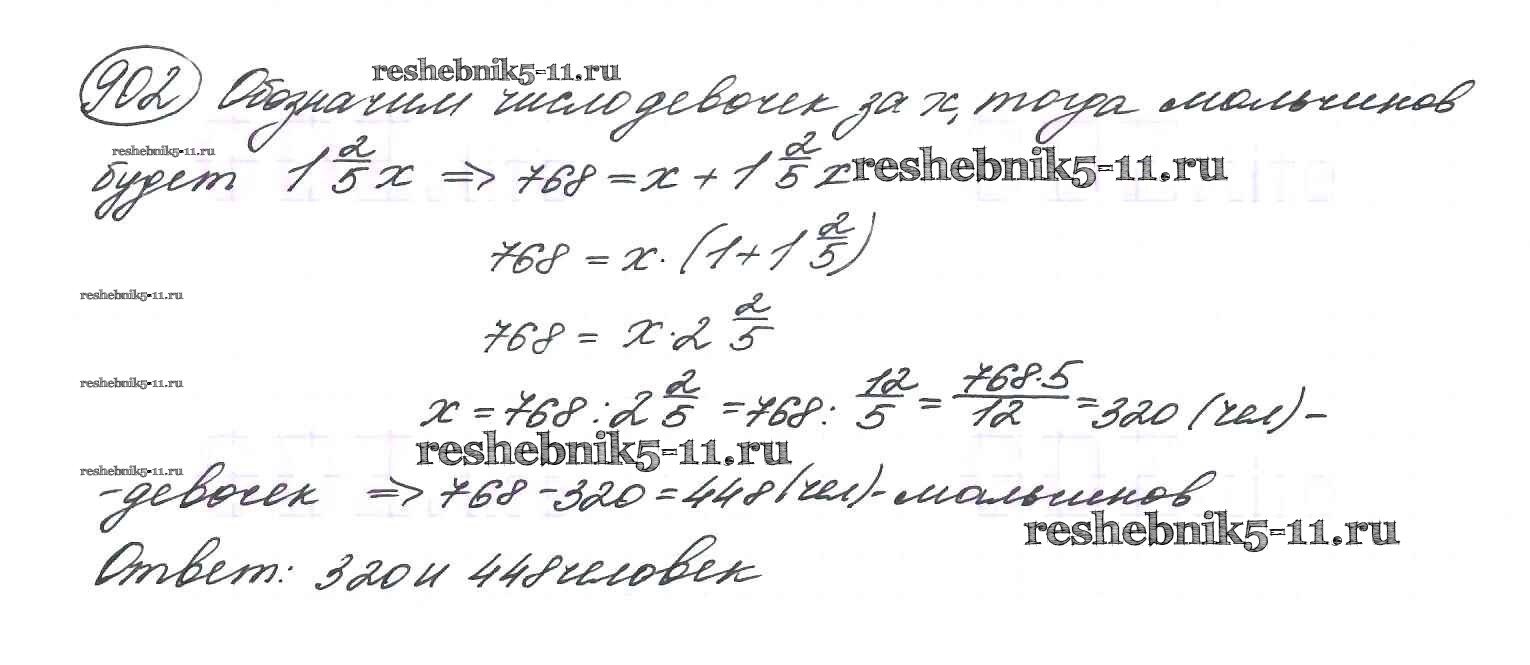 reshebnik5-11.ru
902 Обозначим число девочек за x, тогда мальчиков
reshebnik5-11.ru
будет 1 2/5 x => 768 = x + 1 2/5 x reshebnik5-11.ru
768 = x · (1 + 1 2/5)
reshebnik5-11.ru
768 = x · 2 2/5
reshebnik5-11.ru
x = 768 : 2 2/5 = 768 : 12/5 = 768·5/12 = 320 (чел) -
reshebnik5-11.ru
reshebnik5-11.ru
- девочек => 768 - 320 = 448 (чел) - мальчиков
reshebnik5-11.ru
Ответ: 320 и 448 человек